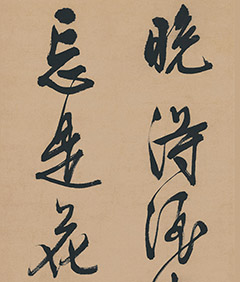 晚得酒
忘是花